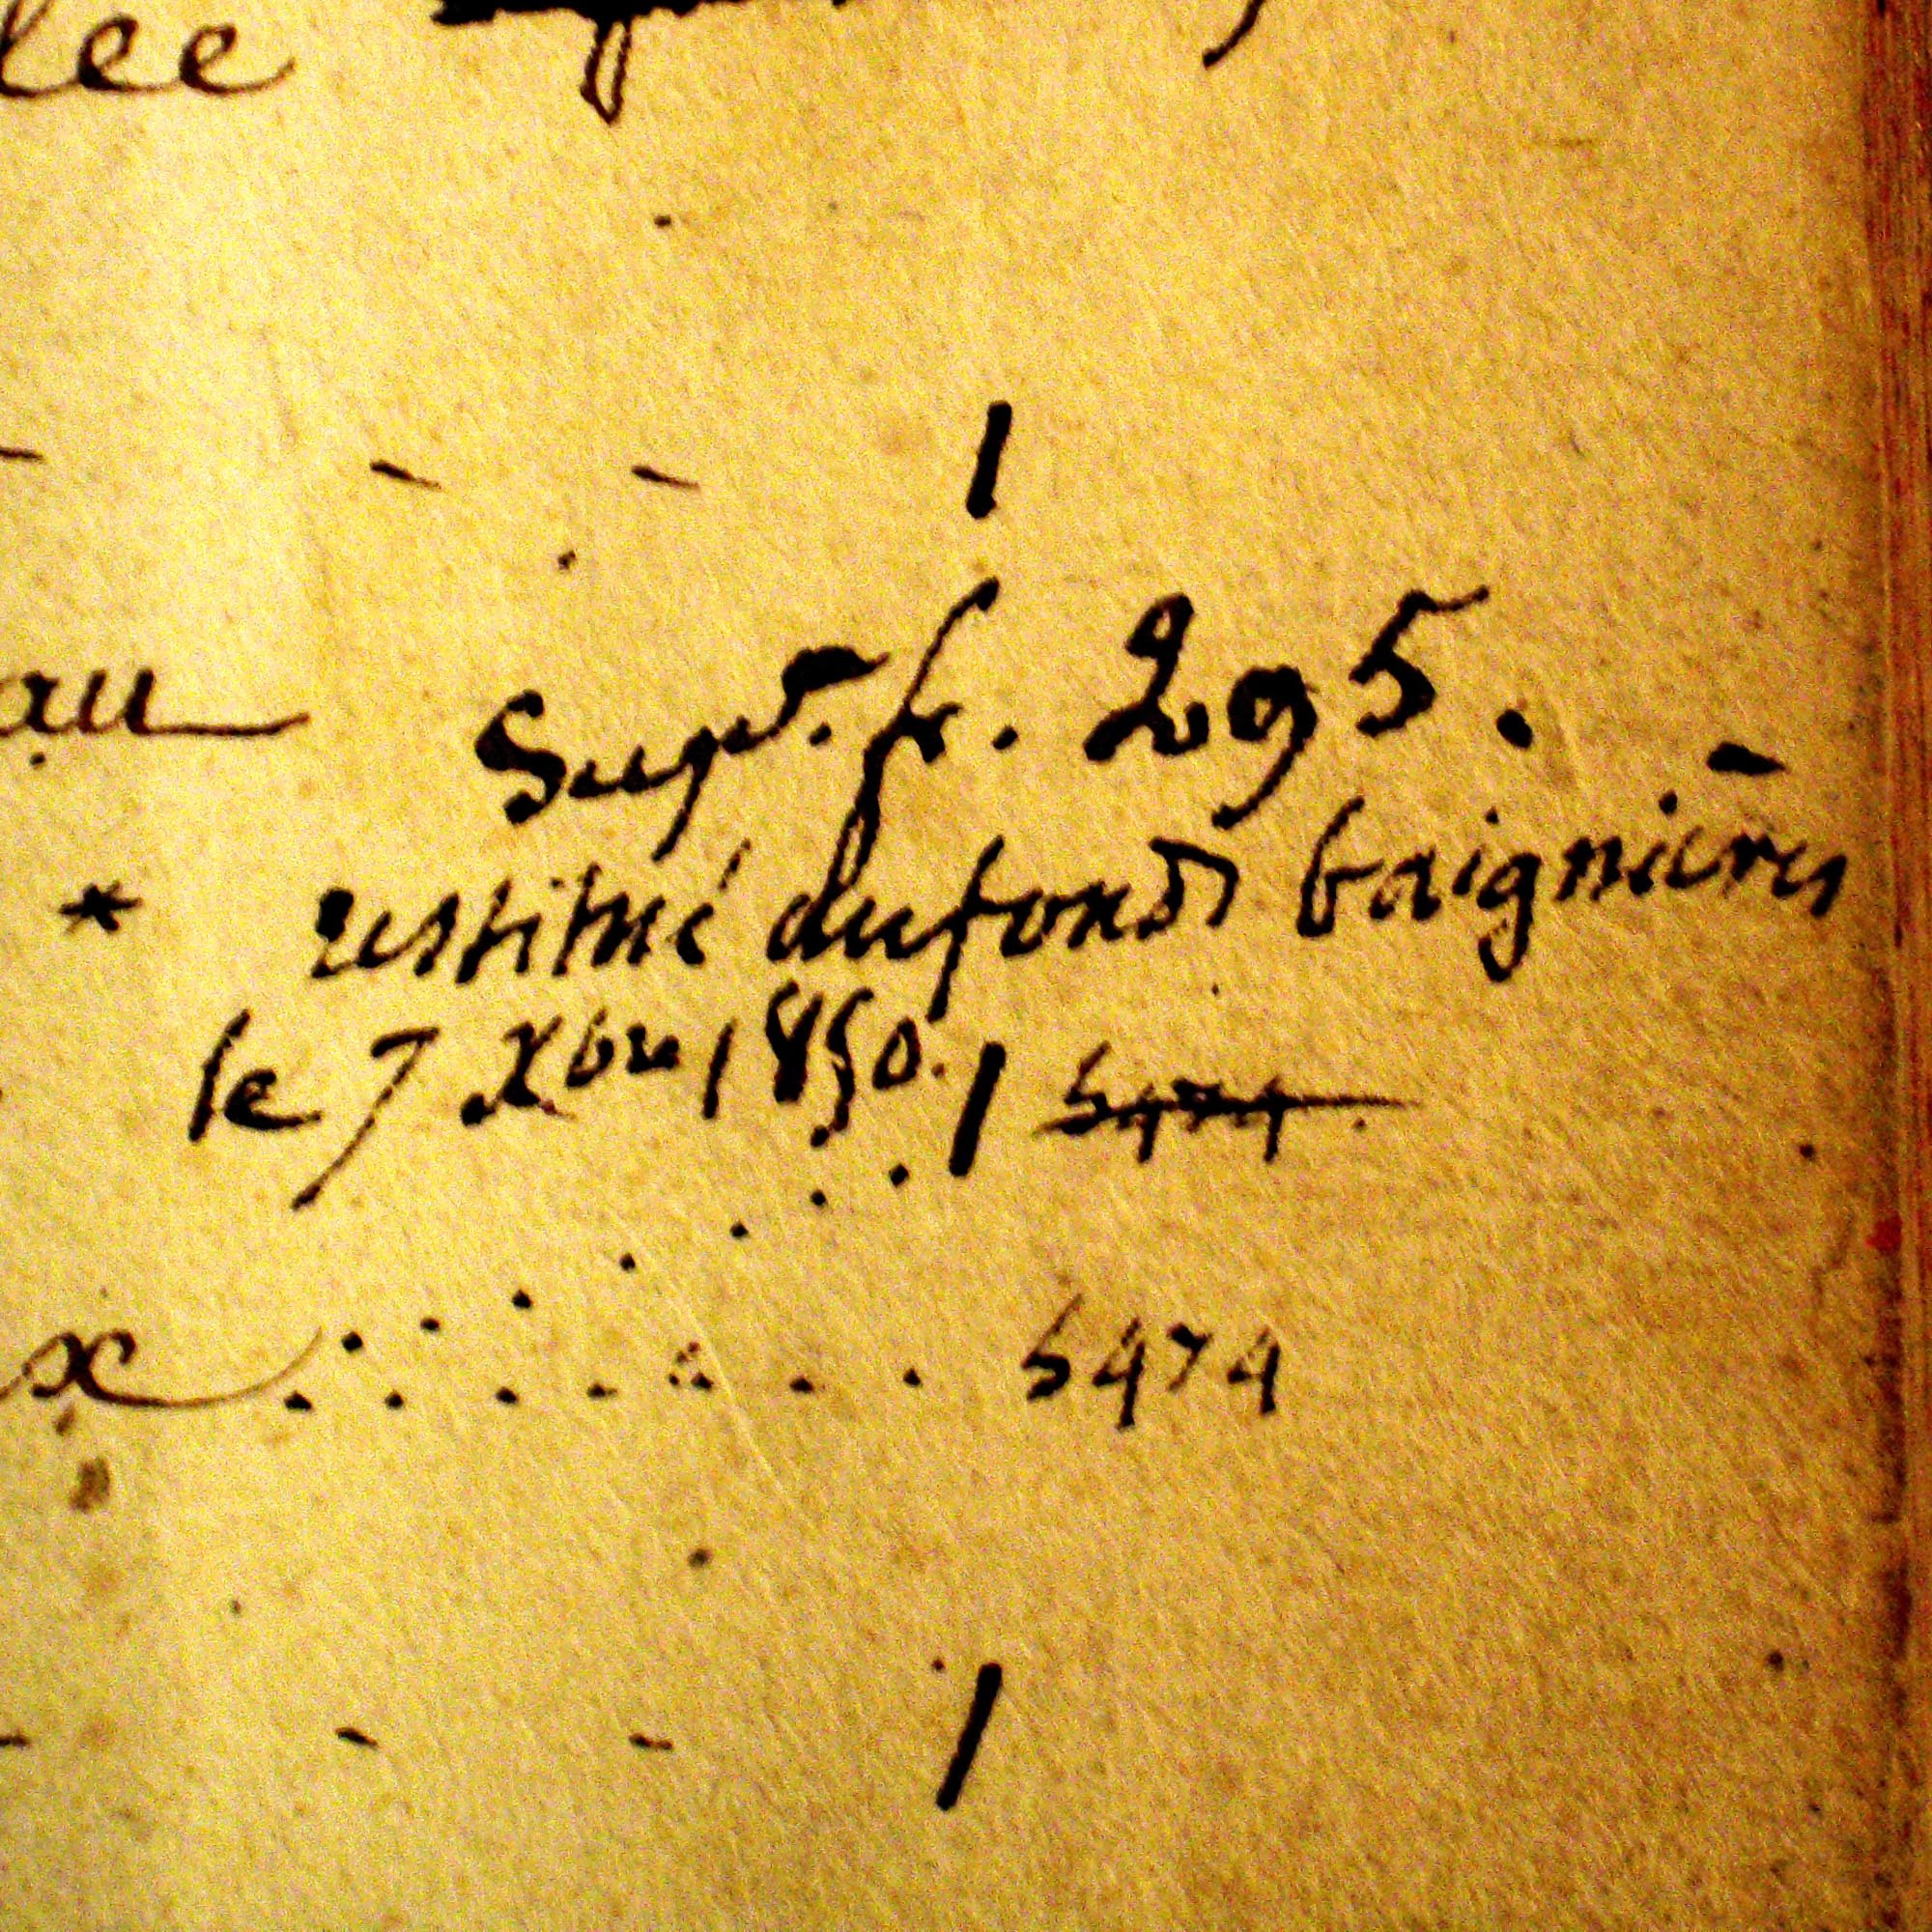 lee
- - - 1
au Supt. fr. 295.
* restitué du fonds baignières
le 7 Xbre 1850. 1 5474
x . . . . . . . 5474
- - - 1